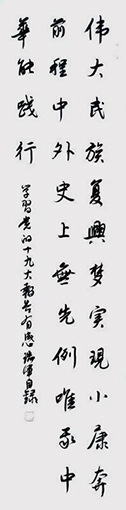 伟大民族复興梦实現小康奔
前程中外史上無先例唯我中
華能践行
学習党的十九大报告有感 自録